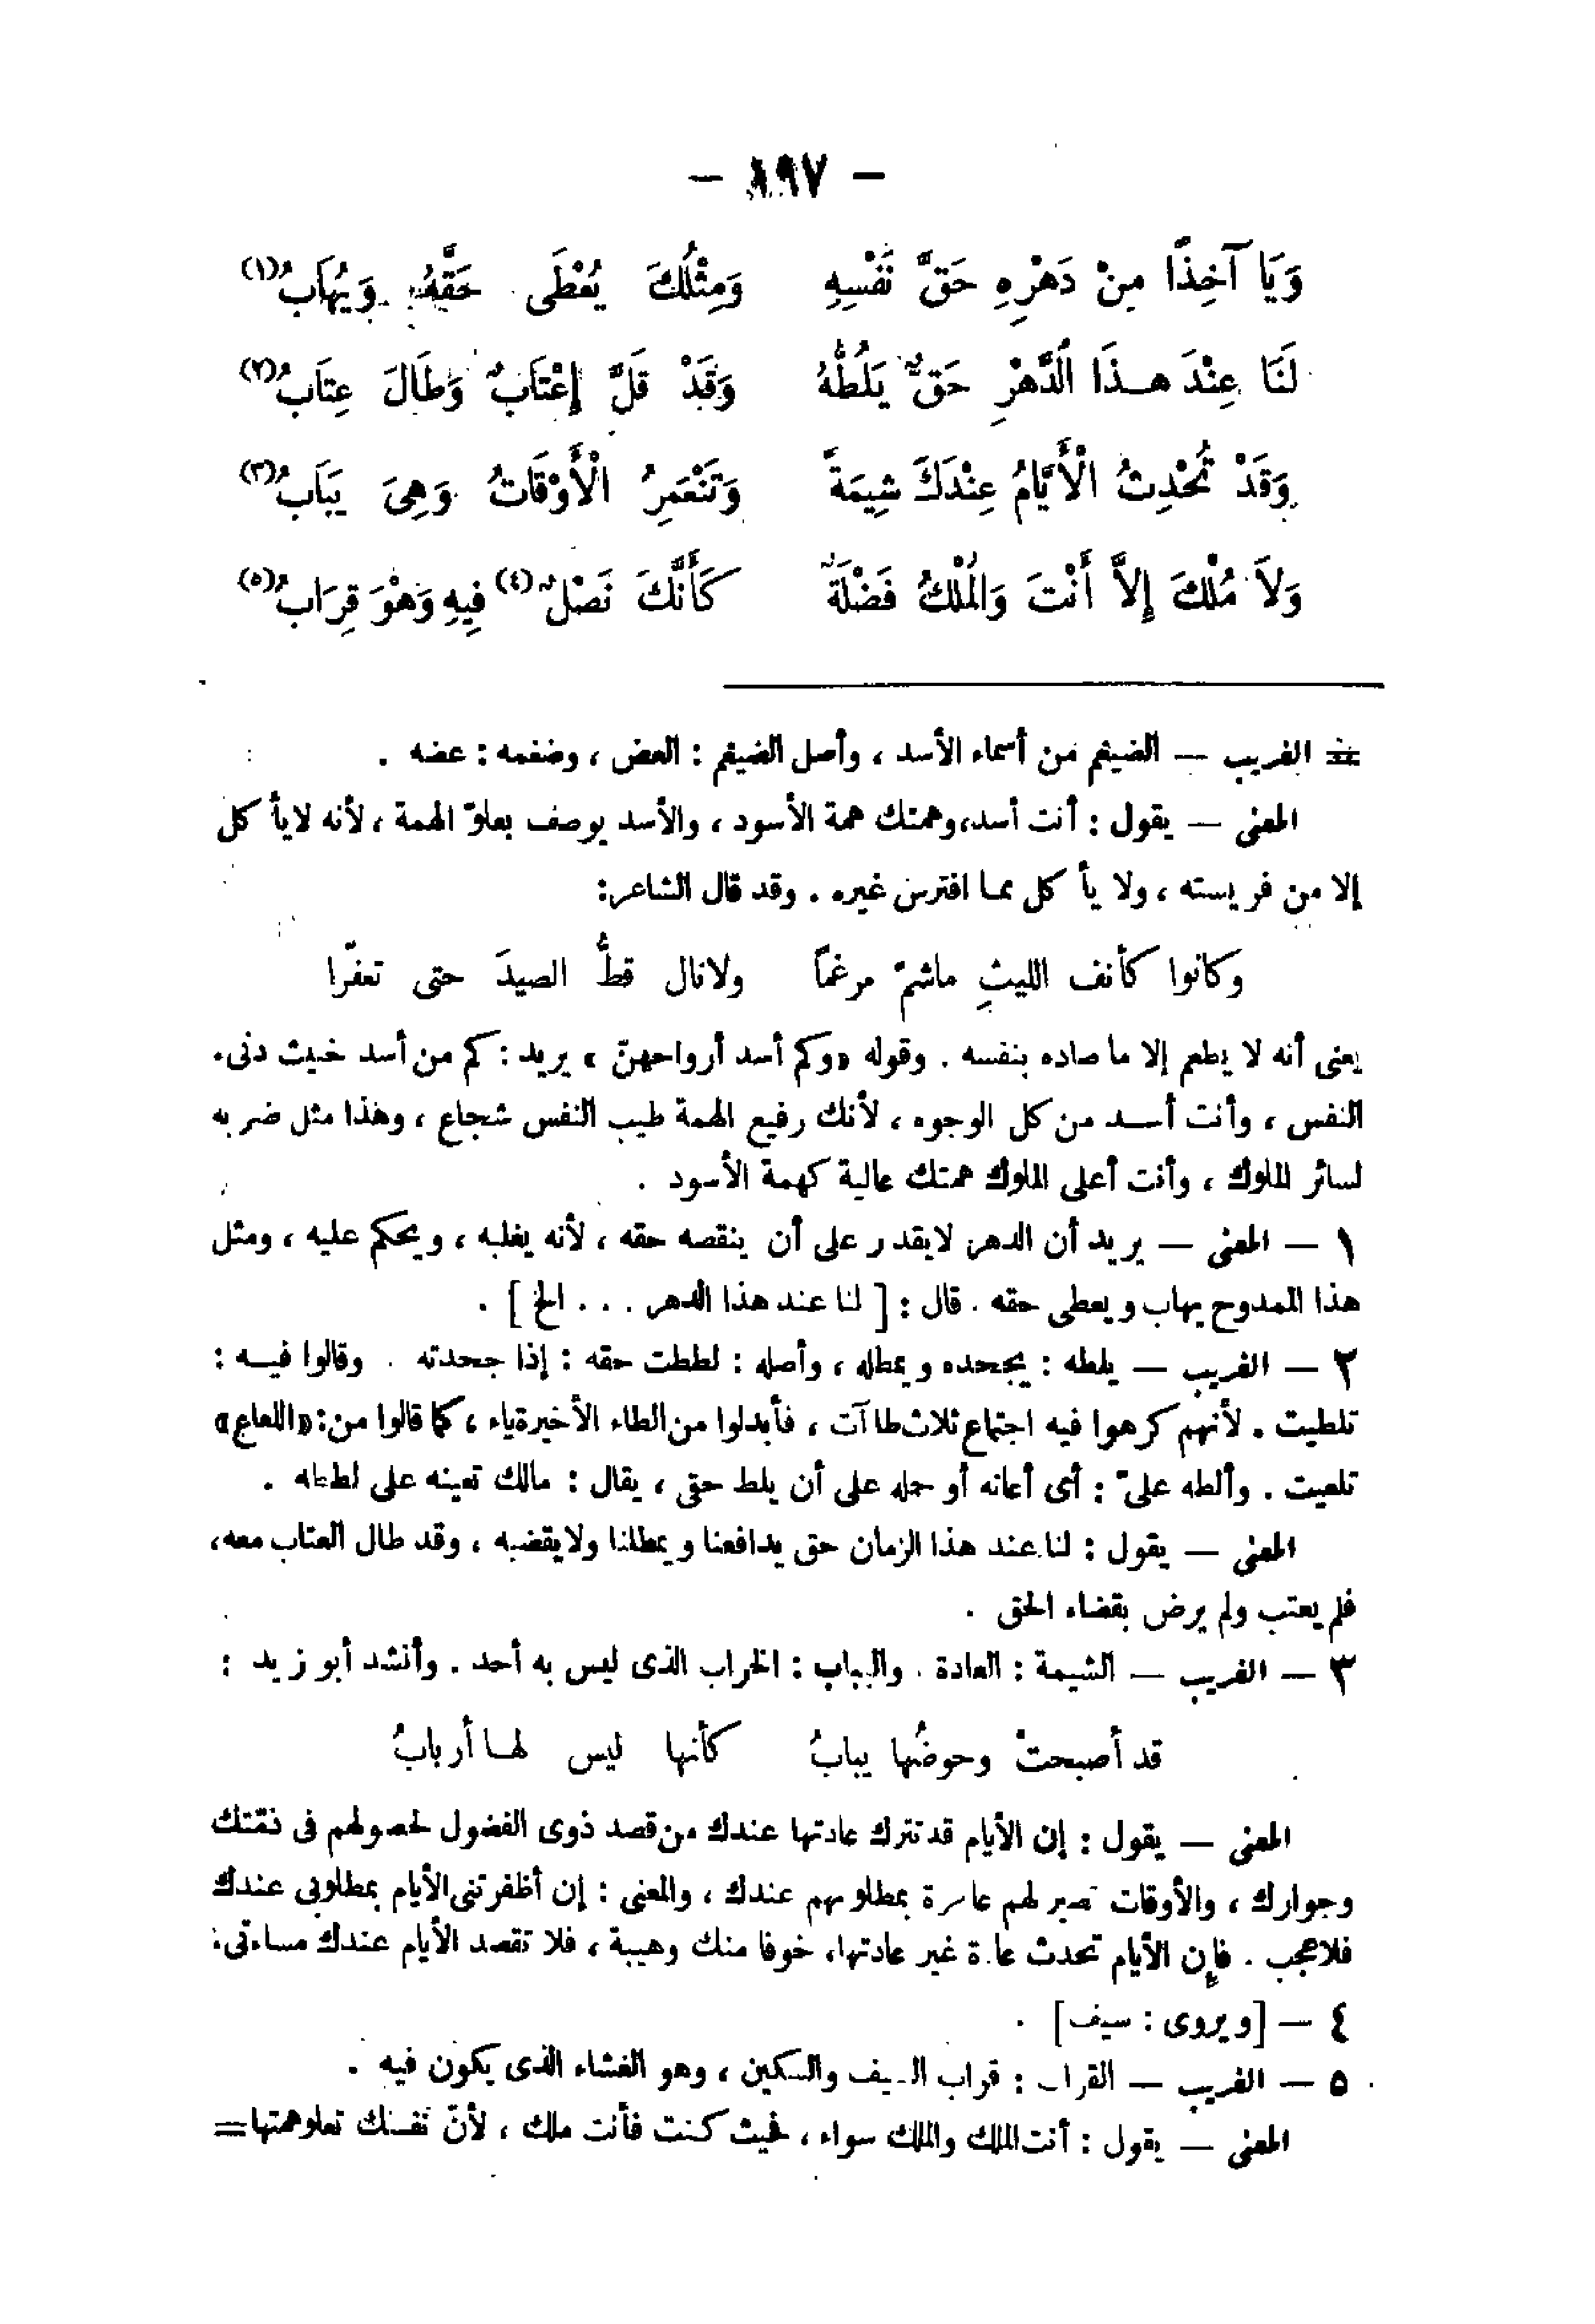 — ١٩٧ —
وَيَا آخِذًا مِنْ دَهْرِهِ حَقَّ نَفْسِهِ وَمِثْلُكَ يُعْطَى حَقَّهُ وَيُهَابُ(١)
لَنَا عِنْدَ هـذَا الدَّهْرِ حَقٌّ يَلُطُّهُ وَقَدْ قَلَّ إِعْتَابٌ وَطَالَ عِتَابُ(٢)
وَقَدْ تُحْدِثُ الْأَيَّامُ عِنْدَكَ شِيمَةً وَتَنْعَمِرُ الْأَوْقَاتُ وَهِىَ يَبَابُ(٣)
وَلاَ مُلْكَ إِلاَّ أَنْتَ وَالْمُلْكُ فَضْلَةٌ كَأَنَّكَ نَصْلٌ(٤) فِيهِ وَهْوَ قِرَابُ(٥)
= الغريب — الضيغم من أسماء الأسد ، وأصل الضيغم : العض ، وضغمه : عضه .
المعنى — يقول : أنت أسد، وهمتك همة الأسود ، والأسد يوصف بعلوّ الهمة ، لأنه لا يأكل
إلا من فريسته ، ولا يأكل مما افترس غيره . وقد قال الشاعر:
وكانوا كأنف الليثِ ماشمّ مرغماً ولانال قطُّ الصيدَ حتى تعفّرا
يعنى أنه لا يطعم إلا ما صاده بنفسه . وقوله «وكم أسد أرواحهنّ » يريد : كم من أسد خبيث دنىء
النفس ، وأنت أسـد من كل الوجوه ، لأنك رفيع الهمة طيب النفس شجاع ، وهذا مثل ضربه
لسائر الملوك ، وأنت أعلى الملوك همتك عالية كهمة الأسود .
١ — المعنى — يريد أن الدهر لايقدر على أن ينقصه حقه ، لأنه يغلبه ، ويحكم عليه ، ومثل
هذا الممدوح يهاب ويعطى حقه . قال : [ لنا عند هذا الدهر . . . الخ ] .
٢ — الغريب — يلطه : يجحده ويمطله ، وأصله : لططت حقه : إذا جحدته . وقالوا فيـه :
تلطيت . لأنهم كرهوا فيه اجتماع ثلاث طاآت ، فأبدلوا من الطاء الأخيرة ياء ، كما قالوا من: «اللعاع»
تلعيت . وألطه علىّ : أى أعانه أو حمله على أن يلط حقى ، يقال : مالك تعينه على لططه .
المعنى — يقول : لنا عند هذا الزمان حق يدافعنا ويمطلنا ولا يقضيه ، وقد طال العتاب معه،
فلم يعتب ولم يرض بقضاء الحق .
٣ — الغريب — الشيمة : العادة . واليباب : الخراب الذى ليس به أحد . وأنشد أبو زيد :
قد أصبحتْ وحوضُها يبابُ كأنها ليس لهـا أربابُ
المعنى — يقول : إن الأيام قد تترك عادتها عندك من قصد ذوى الفضول لحصولهم فى ذمّتك
وجوارك ، والأوقات تصير لهم عامرة بمطلوبهم عندك ، والمعنى : إن أظفرتنى الأيام بمطلوبى عندك
فلا عجب . فإن الأيام تحدث عادة غير عادتها، خوفا منك وهيبة ، فلا تقصد الأيام عندك مساءتى.
٤ — [ويروى : سيف] .
٥ — الغريب — القراب : قراب السيف والسكين ، وهو الغشاء الذى يكون فيه .
المعنى — يقول : أنت الملك والملك سواء ، فحيث كنت فأنت ملك ، لأنّ نفسك تعلو همتها=